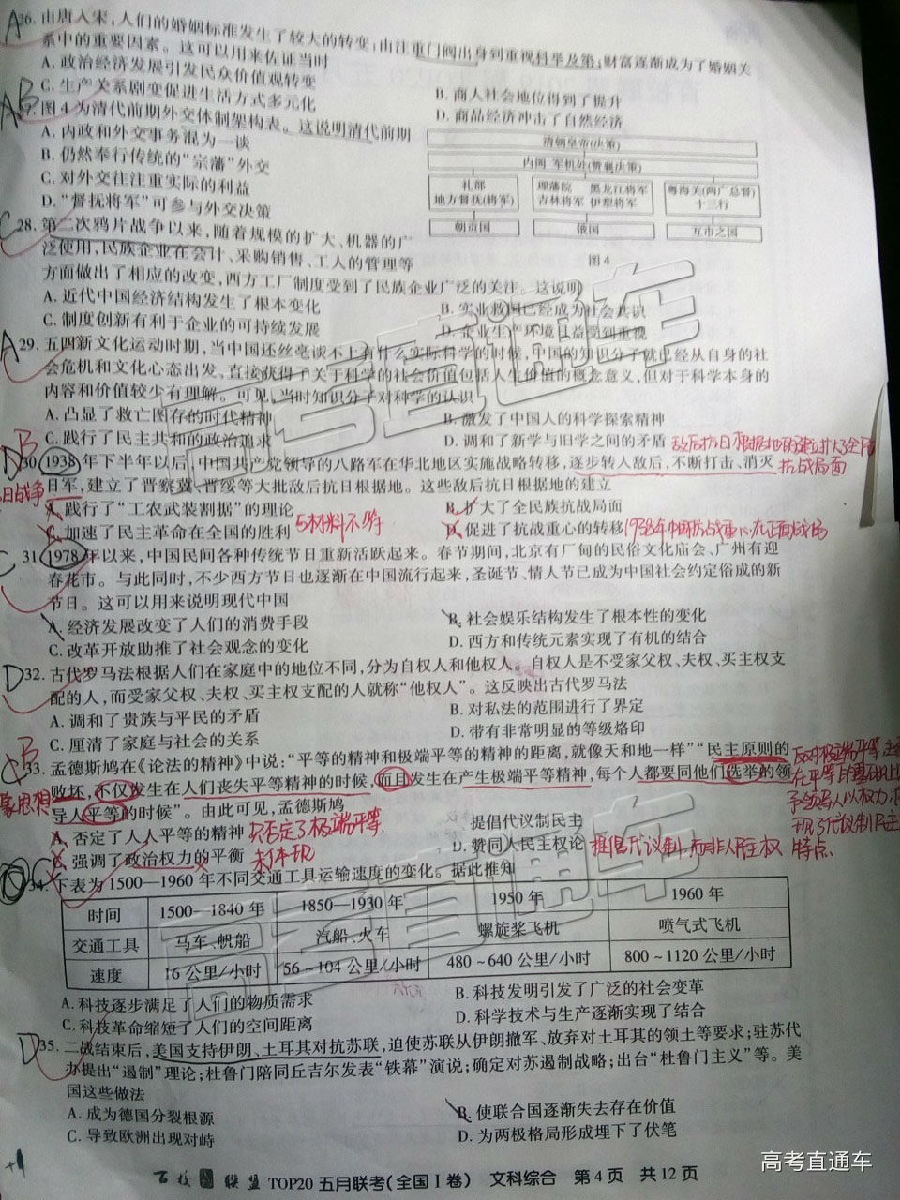 A26.由唐入宋,人们的婚姻标准发生了较大的转变:由注重门阀出身到重视科举及第;财富逐渐成为了婚姻关
系中的重要因素。这可以用来佐证当时
A.政治经济发展引发民众价值观转变
B.商人社会地位得到了提升
C.生产关系剧变促进生活方式多元化
D.商品经济冲击了自然经济
AB27.图4为清代前期外交体制架构表。这说明清代前期
A.内政和外交事务混为一谈
B.仍然奉行传统的“宗藩”外交
C.对外交往注重实际的利益
D.“督抚将军”可参与外交决策
清朝皇帝(决策)
内阁 军机处(赞襄决策)
礼部
地方督抚(将军)
理藩院 黑龙江将军
吉林将军 伊犁将军
粤海关(两广总督)
十三行
朝贡国
俄国
互市之国
图4
C28.第二次鸦片战争以来,随着规模的扩大、机器的广
泛使用,民族企业在会计、采购销售、工人的管理等
方面做出了相应的改变,西方工厂制度受到了民族企业广泛的关注。这说明
A.近代中国经济结构发生了根本变化
B.实业救国已经成为社会共识
C.制度创新有利于企业的可持续发展
D.企业生产环境日益受到重视
A29.五四新文化运动时期,当中国还丝毫谈不上有什么实际科学的时候,中国的知识分子就已经从自身的社
会危机和文化心态出发,直接获得了关于科学的社会价值包括人生价值的概念意义,但对于科学本身的
内容和价值较少有理解。可见,当时知识分子对科学的认识
A.凸显了救亡图存的时代精神
B.激发了中国人的科学探索精神
C.践行了民主共和的政治追求
D.调和了新学与旧学之间的矛盾
敌后抗日根据地的建立扩大全民族
抗战局面
DB30.1938年下半年以后,中国共产党领导的八路军在华北地区实施战略转移,逐步转入敌后,不断打击、消灭
日战争
日军,建立了晋察冀、晋绥等大批敌后抗日根据地。这些敌后抗日根据地的建立
A.践行了“工农武装割据”的理论
B.扩大了全民族抗战局面
C.加速了民主革命在全国的胜利 与材料不符
D.促进了抗战重心的转移 1938年中国抗战重心在正面战场
C31.1978年以来,中国民间各种传统节日重新活跃起来。春节期间,北京有厂甸的民俗文化庙会、广州有迎
春花市。与此同时,不少西方节日也逐渐在中国流行起来,圣诞节、情人节已成为中国社会约定俗成的新
节日。这可以用来说明现代中国
A.经济发展改变了人们的消费手段
B.社会娱乐结构发生了根本性的变化
C.改革开放助推了社会观念的变化
D.西方和传统元素实现了有机的结合
D32.古代罗马法根据人们在家庭中的地位不同,分为自权人和他权人。自权人是不受家父权、夫权、买主权支
配的人,而受家父权、夫权、买主权支配的人就称“他权人”。这反映出古代罗马法
A.调和了贵族与平民的矛盾
B.对私法的范围进行了界定
C.厘清了家庭与社会的关系
D.带有非常明显的等级烙印
CB33.孟德斯鸠在《论法的精神》中说:“平等的精神和极端平等的精神的距离,就像天和地一样”“民主原则的
败坏,不仅发生在人们丧失平等精神的时候,而且发生在产生极端平等精神,每个人都要同他们选举的领
导人平等的时候”。由此可见,孟德斯鸠
蒙思想
反对极端平等,主张
在平等的基础上
予领导人以权力,
体现了代议制民主
特点
A.否定了人人平等的精神 只否定了极端平等
提倡代议制民主
C.强调了政治权力的平衡 未体现
D.赞同人民主权论 提倡代议制,而非人民主权
DC34.下表为1500—1960年不同交通工具运输速度的变化。据此推知
时间 1500—1840年 1850—1930年 1950年 1960年
交通工具 马车、帆船 汽船、火车 螺旋桨飞机 喷气式飞机
速度 16公里/小时 56~104公里/小时 480~640公里/小时 800~1120公里/小时
A.科技逐步满足了人们的物质需求
B.科技发明引发了广泛的社会变革
C.科技革命缩短了人们的空间距离
D.科学技术与生产逐渐实现了结合
D35.二战结束后,美国支持伊朗、土耳其对抗苏联,迫使苏联从伊朗撤军、放弃对土耳其的领土等要求;驻苏代
办提出“遏制”理论;杜鲁门陪同丘吉尔发表“铁幕”演说;确定对苏遏制战略;出台“杜鲁门主义”等。美
国这些做法
A.成为德国分裂根源
B.使联合国逐渐失去存在价值
C.导致欧洲出现对峙
D.为两极格局形成埋下了伏笔
+4
百校联盟 TOP20 五月联考(全国Ⅰ卷) 文科综合 第4页 共12页
高考直通车
高考直通车
高考直通车